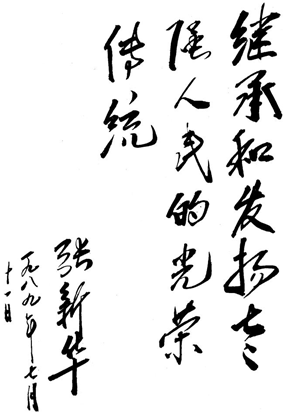 继承和发扬老
隆人民的光荣
传统
张新华
一九八九年七月
十一日